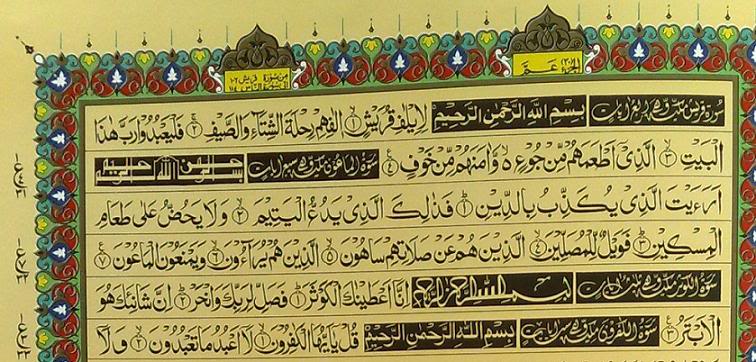 الجزء (٣٠) عمّ
من سورة قريش ١٠٦
الى سورة الناس ١١٤
سورة قريش مكية وهي اربع ايات بسم الله الرحمن الرحيم لِإِيلَافِ قُرَيْشٍ ١ إِلَافِهِمْ رِحْلَةَ الشِّتَاءِ وَالصَّيْفِ ٢ فَلْيَعْبُدُوا رَبَّ هَذَا
الْبَيْتِ ٣ الَّذِي أَطْعَمَهُمْ مِنْ جُوعٍ ٥ وَآمَنَهُمْ مِنْ خَوْفٍ ٤ سورة الماعون مكية وهي سبع ايات بسم الله الرحمن الرحيم
أَرَءَيْتَ الَّذِي يُكَذِّبُ بِالدِّينِ ١ فَذَلِكَ الَّذِي يَدُعُّ الْيَتِيمَ ٢ وَلَا يَحُضُّ عَلَى طَعَامِ
الْمِسْكِينِ ٣ فَوَيْلٌ لِلْمُصَلِّينَ ٤ الَّذِينَ هُمْ عَنْ صَلَاتِهِمْ سَاهُونَ ٥ الَّذِينَ هُمْ يُرَاءُونَ ٦ وَيَمْنَعُونَ الْمَاعُونَ ٧
سورة الكوثر مكية وهي ثلث ايات بسم الله الرحمن الرحيم إِنَّا أَعْطَيْنَاكَ الْكَوْثَرَ ١ فَصَلِّ لِرَبِّكَ وَانْحَرْ ٢ إِنَّ شَانِئَكَ هُوَ
الْأَبْتَرُ ٣ سورة الكفرون مكية وهي ست ايات بسم الله الرحمن الرحيم قُلْ يَا أَيُّهَا الْكَافِرُونَ ١ لَا أَعْبُدُ مَا تَعْبُدُونَ ٢ وَلَا